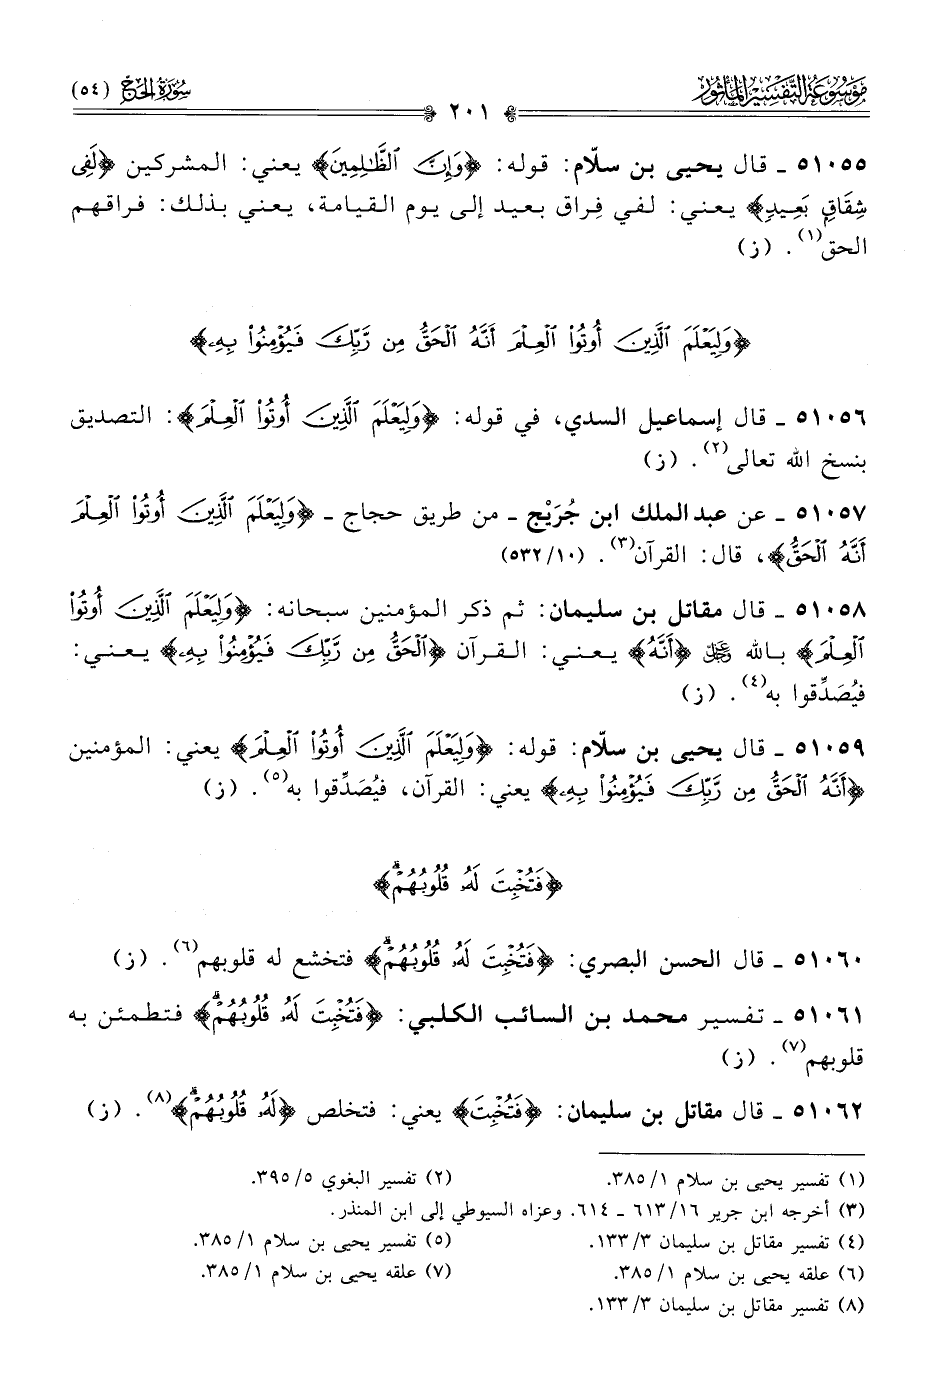 موسوعة التفسير المأثور
سورة الحج (٥٤)
٢٠١
٥١٠٥٥ ـ قال يحيى بن سلّام: قوله: ﴿وَإِنَّ ٱلظَّٰلِمِينَ﴾ يعني: المشركين ﴿لَفِى
شِقَاقِۭ بَعِيدٍ﴾ يعني: لفي فِراق بعيد إلى يوم القيامة، يعني بذلك: فراقهم
الحق(١). (ز)
﴿وَلِيَعْلَمَ ٱلَّذِينَ أُوتُوا۟ ٱلْعِلْمَ أَنَّهُ ٱلْحَقُّ مِن رَّبِّكَ فَيُؤْمِنُوا۟ بِهِۦ﴾
٥١٠٥٦ ـ قال إسماعيل السدي، في قوله: ﴿وَلِيَعْلَمَ ٱلَّذِينَ أُوتُوا۟ ٱلْعِلْمَ﴾: التصديق
بنسخ الله تعالى(٢). (ز)
٥١٠٥٧ ـ عن عبد الملك ابن جُرَيْج ـ من طريق حجاج ـ ﴿وَلِيَعْلَمَ ٱلَّذِينَ أُوتُوا۟ ٱلْعِلْمَ
أَنَّهُ ٱلْحَقُّ﴾، قال: القرآن(٣). (١٠/٥٣٢)
٥١٠٥٨ ـ قال مقاتل بن سليمان: ثم ذكر المؤمنين سبحانه: ﴿وَلِيَعْلَمَ ٱلَّذِينَ أُوتُوا۟
ٱلْعِلْمَ﴾ بالله ﷿ ﴿أَنَّهُ﴾ يعني: القرآن ﴿ٱلْحَقُّ مِن رَّبِّكَ فَيُؤْمِنُوا۟ بِهِۦ﴾ يعني:
فيُصَدِّقوا به(٤). (ز)
٥١٠٥٩ ـ قال يحيى بن سلّام: قوله: ﴿وَلِيَعْلَمَ ٱلَّذِينَ أُوتُوا۟ ٱلْعِلْمَ﴾ يعني: المؤمنين
﴿أَنَّهُ ٱلْحَقُّ مِن رَّبِّكَ فَيُؤْمِنُوا۟ بِهِۦ﴾ يعني: القرآن، فيُصَدِّقوا به(٥). (ز)
﴿فَتُخْبِتَ لَهُۥ قُلُوبُهُمْ ۗ﴾
٥١٠٦٠ ـ قال الحسن البصري: ﴿فَتُخْبِتَ لَهُۥ قُلُوبُهُمْ ۗ﴾ فتخشع له قلوبهم(٦). (ز)
٥١٠٦١ ـ تفسير محمد بن السائب الكلبي: ﴿فَتُخْبِتَ لَهُۥ قُلُوبُهُمْ ۗ﴾ فتطمئن به
قلوبهم(٧). (ز)
٥١٠٦٢ ـ قال مقاتل بن سليمان: ﴿فَتُخْبِتَ﴾ يعني: فتخلص ﴿لَهُۥ قُلُوبُهُمْ ۗ﴾(٨). (ز)
(١) تفسير يحيى بن سلام ١/ ٣٨٥.
(٢) تفسير البغوي ٥/ ٣٩٥.
(٣) أخرجه ابن جرير ١٦/ ٦١٣ ـ ٦١٤. وعزاه السيوطي إلى ابن المنذر.
(٤) تفسير مقاتل بن سليمان ٣/ ١٣٣.
(٥) تفسير يحيى بن سلام ١/ ٣٨٥.
(٦) علقه يحيى بن سلام ١/ ٣٨٥.
(٧) علقه يحيى بن سلام ١/ ٣٨٥.
(٨) تفسير مقاتل بن سليمان ٣/ ١٣٣.